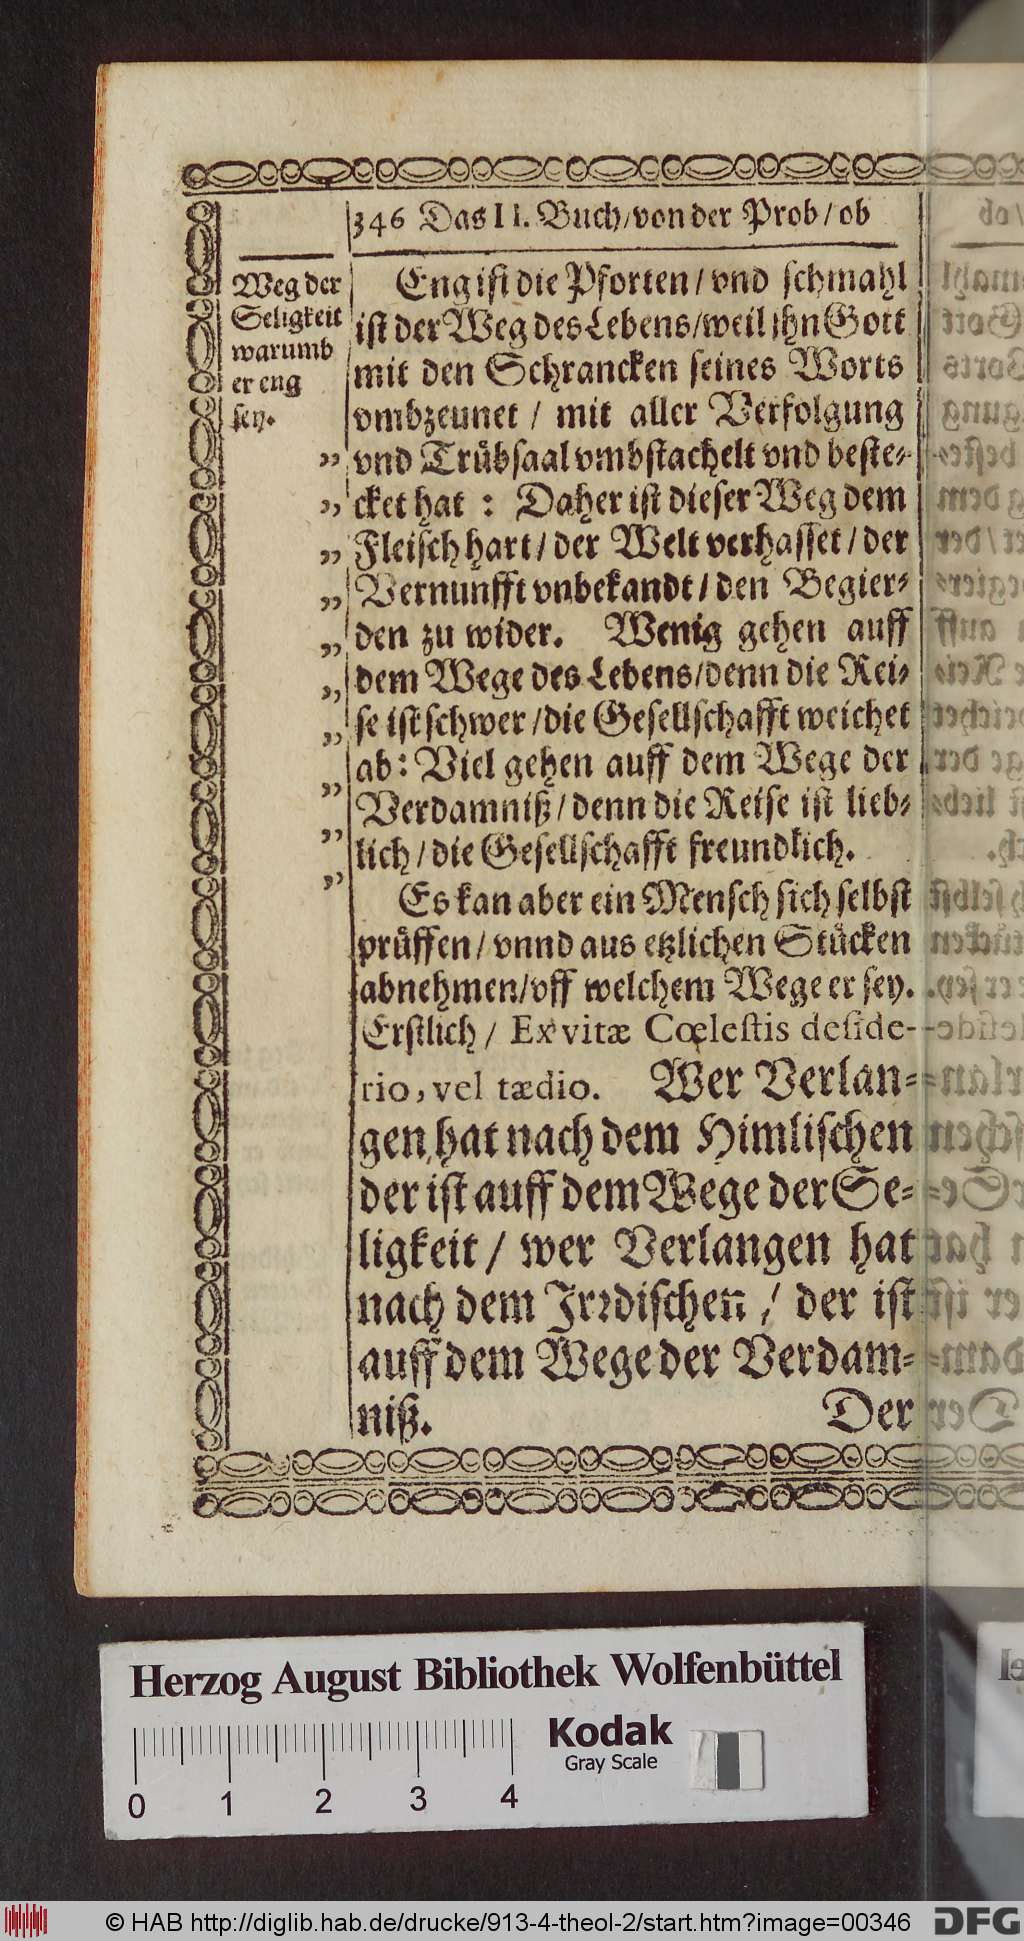 346 Das II. Buch/von der Prob/ob
Weg der
Seligkeit
warumb
er eng
sey.
Eng ist die Pforten/vnd schmahl
ist der Weg des Lebens/weil ihn Gott
mit den Schrancken seines Worts
vmbzeunet / mit aller Verfolgung
vnd Trübsaal vmbstachelt vnd beste-
cket hat : Daher ist dieser Weg dem
Fleisch hart/der Welt verhasset/der
Vernunfft vnbekandt/den Begier-
den zu wider. Wenig gehen auff
dem Wege des Lebens/denn die Rei-
se ist schwer/die Gesellschafft weichet
ab: Viel gehen auff dem Wege der
Verdamniß/denn die Reise ist lieb-
lich/die Gesellschafft freundlich.
Es kan aber ein Mensch sich selbst
prüffen/vnnd aus etzlichen Stücken
abnehmen/vff welchem Wege er sey.
Erstlich/ Ex vitæ Cœlestis deside-
rio, vel tædio. Wer Verlan-
gen hat nach dem Himlischen
der ist auff dem Wege der Se-
ligkeit/ wer Verlangen hat
nach dem Irrdischen / der ist
auff dem Wege der Verdam-
niß. Der
Herzog August Bibliothek Wolfenbüttel
Kodak
Gray Scale
0 1 2 3 4
© HAB http://diglib.hab.de/drucke/913-4-theol-2/start.htm?image=00346
DFG